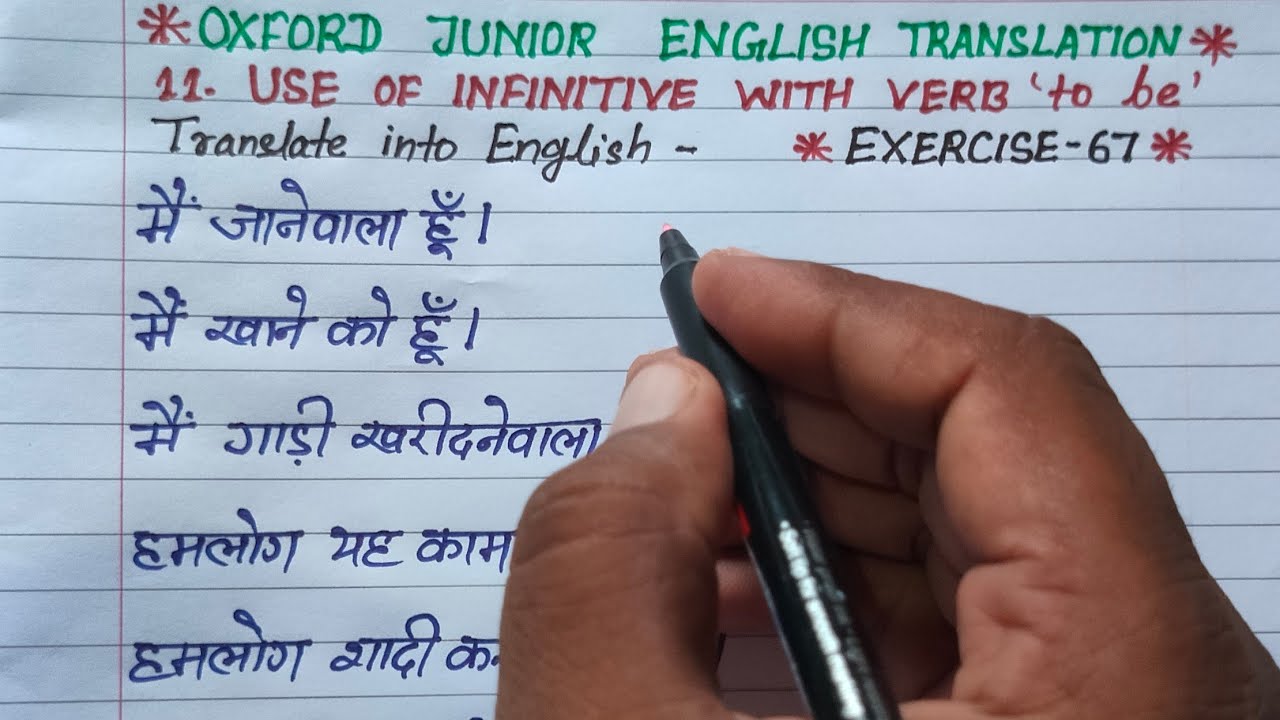 *OXFORD JUNIOR ENGLISH TRANSLATION*
11. USE OF INFINITIVE WITH VERB 'to be'
Translate into English - * EXERCISE-67 *
मैं जानेवाला हूँ।
मैं खाने को हूँ।
मैं गाड़ी खरीदनेवाला
हमलोग यह काम
हमलोग शादी